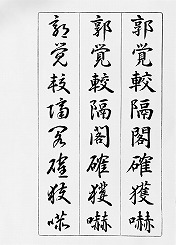 郭覚較隔閣確獲嚇
郭覚較隔閣確獲嚇
郭覚較隔閣確獲嚇